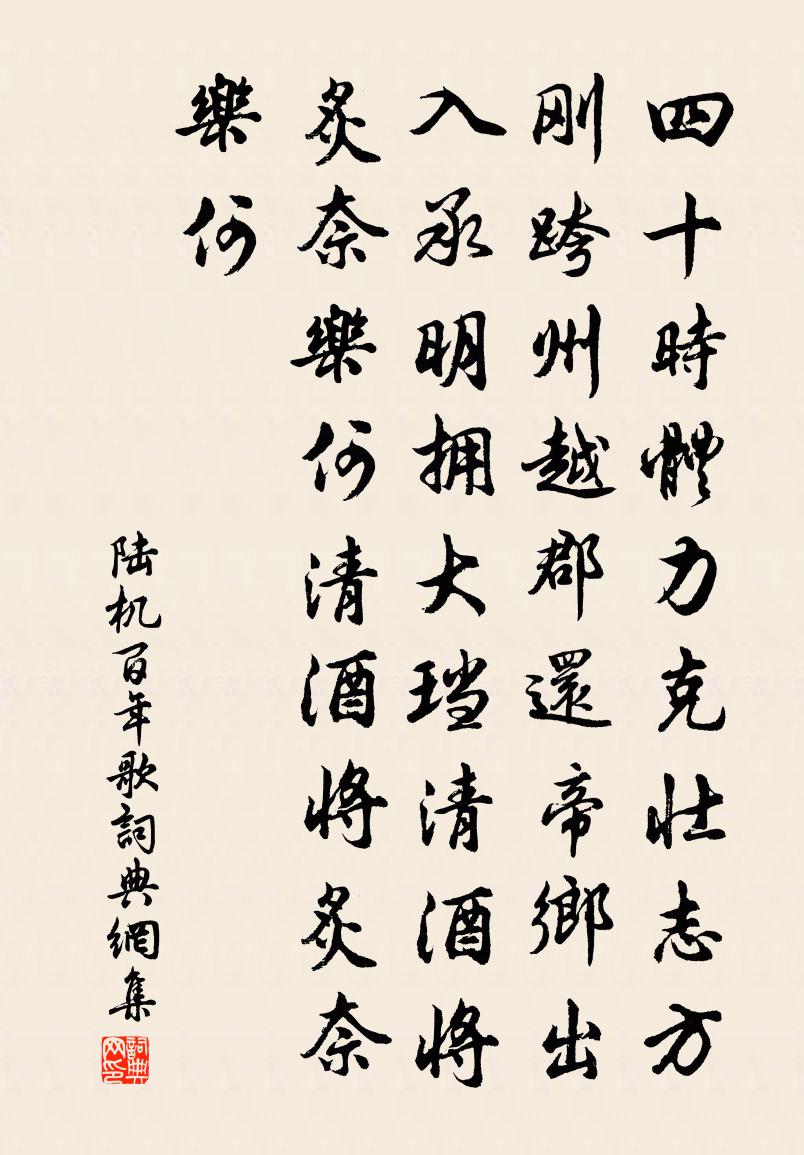 四十時體力克壯志方
刚跨州越郡還帝鄉出
入承明拥大璫清酒將
炙奈樂何清酒將炙奈
樂何
陆机百年歌詞典網集
詞典网印